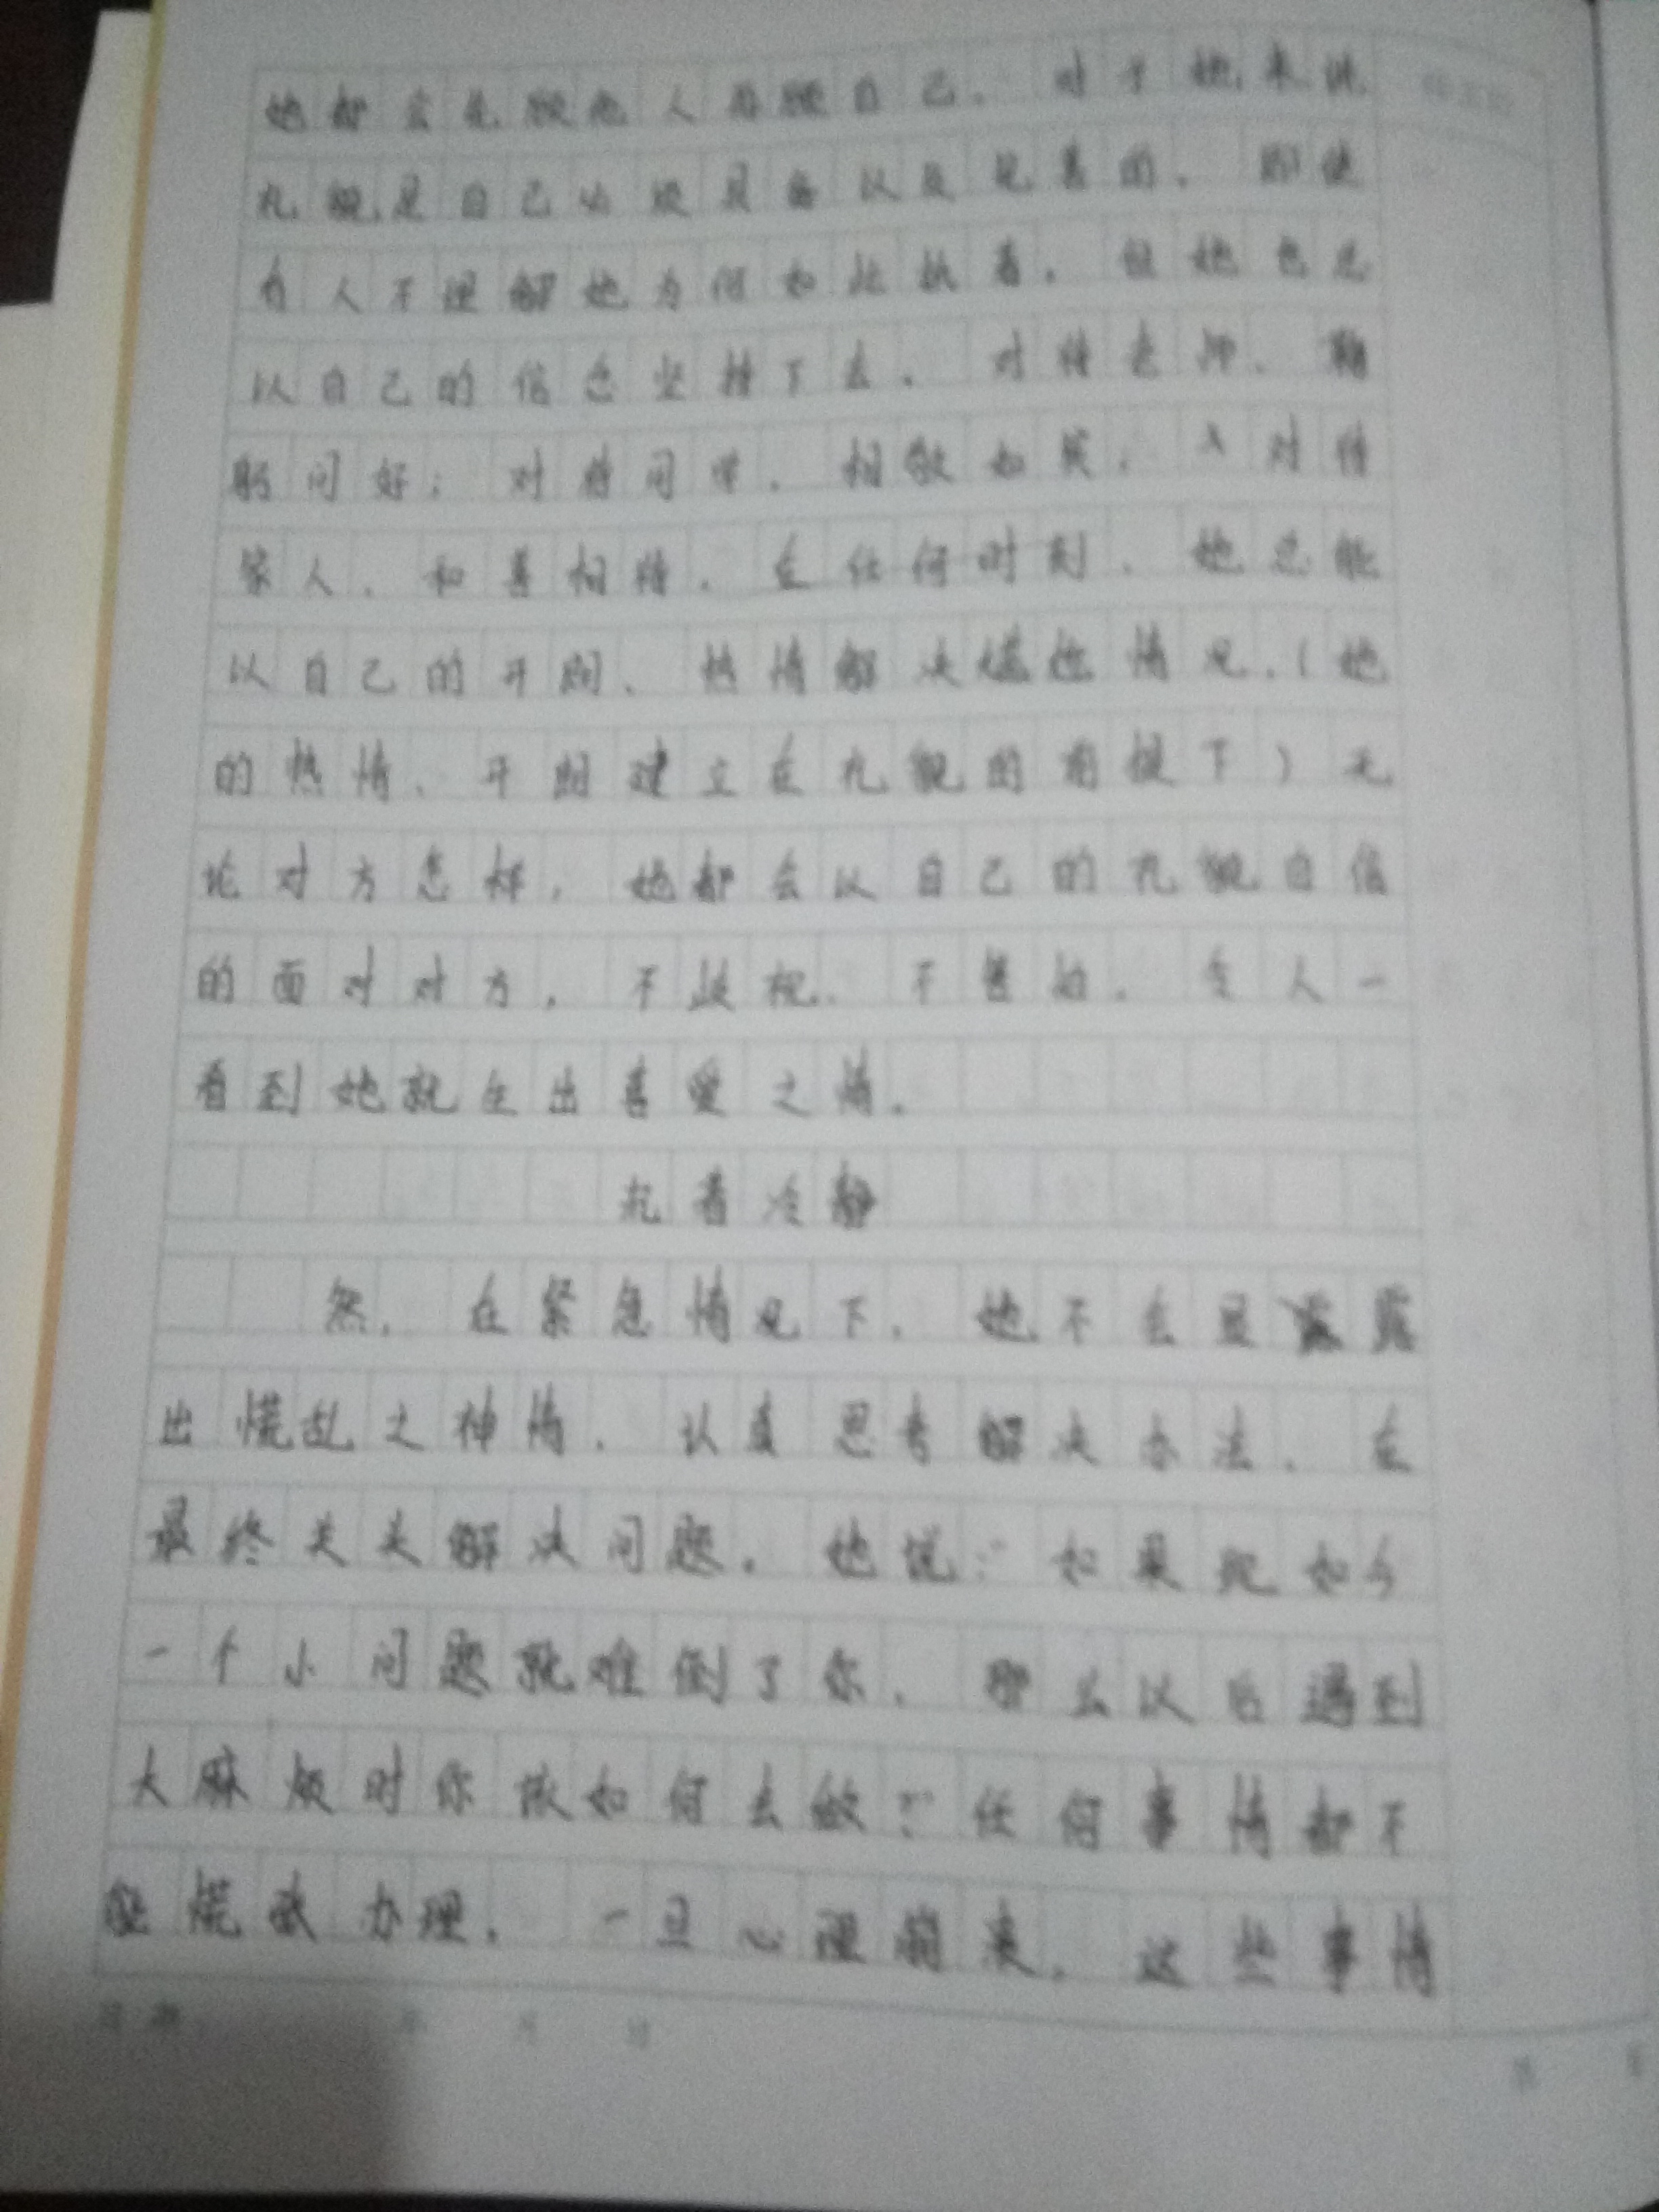 她都会先顾他人再顾自己。对于她来说
礼貌是自己必须具备以及完善的。即使
有人不理解她为何如此执着，但她也总
以自己的信念坚持下去。对待老师，鞠
躬问好；对待同学，相敬如宾；对待
家人，和善相待。在任何时刻，她总能
以自己的开朗、热情解决尴尬情况。（她
的热情、开朗建立在礼貌的前提下）无
论对方怎样，她都会以自己的礼貌自信
的面对对方，不歧视、不害怕。令人一
看到她就生出喜爱之情。
沉着冷静
然，在紧急情况下，她不会显露
出慌乱之神情，认真思考解决办法，在
最终关头解决问题。她说：“如果说如今
一个小问题就难倒了你，那么以后遇到
大麻烦时你该如何去做？”任何事情都不
能慌张办理，一旦心理崩溃，这些事情
日期： 年 月 日